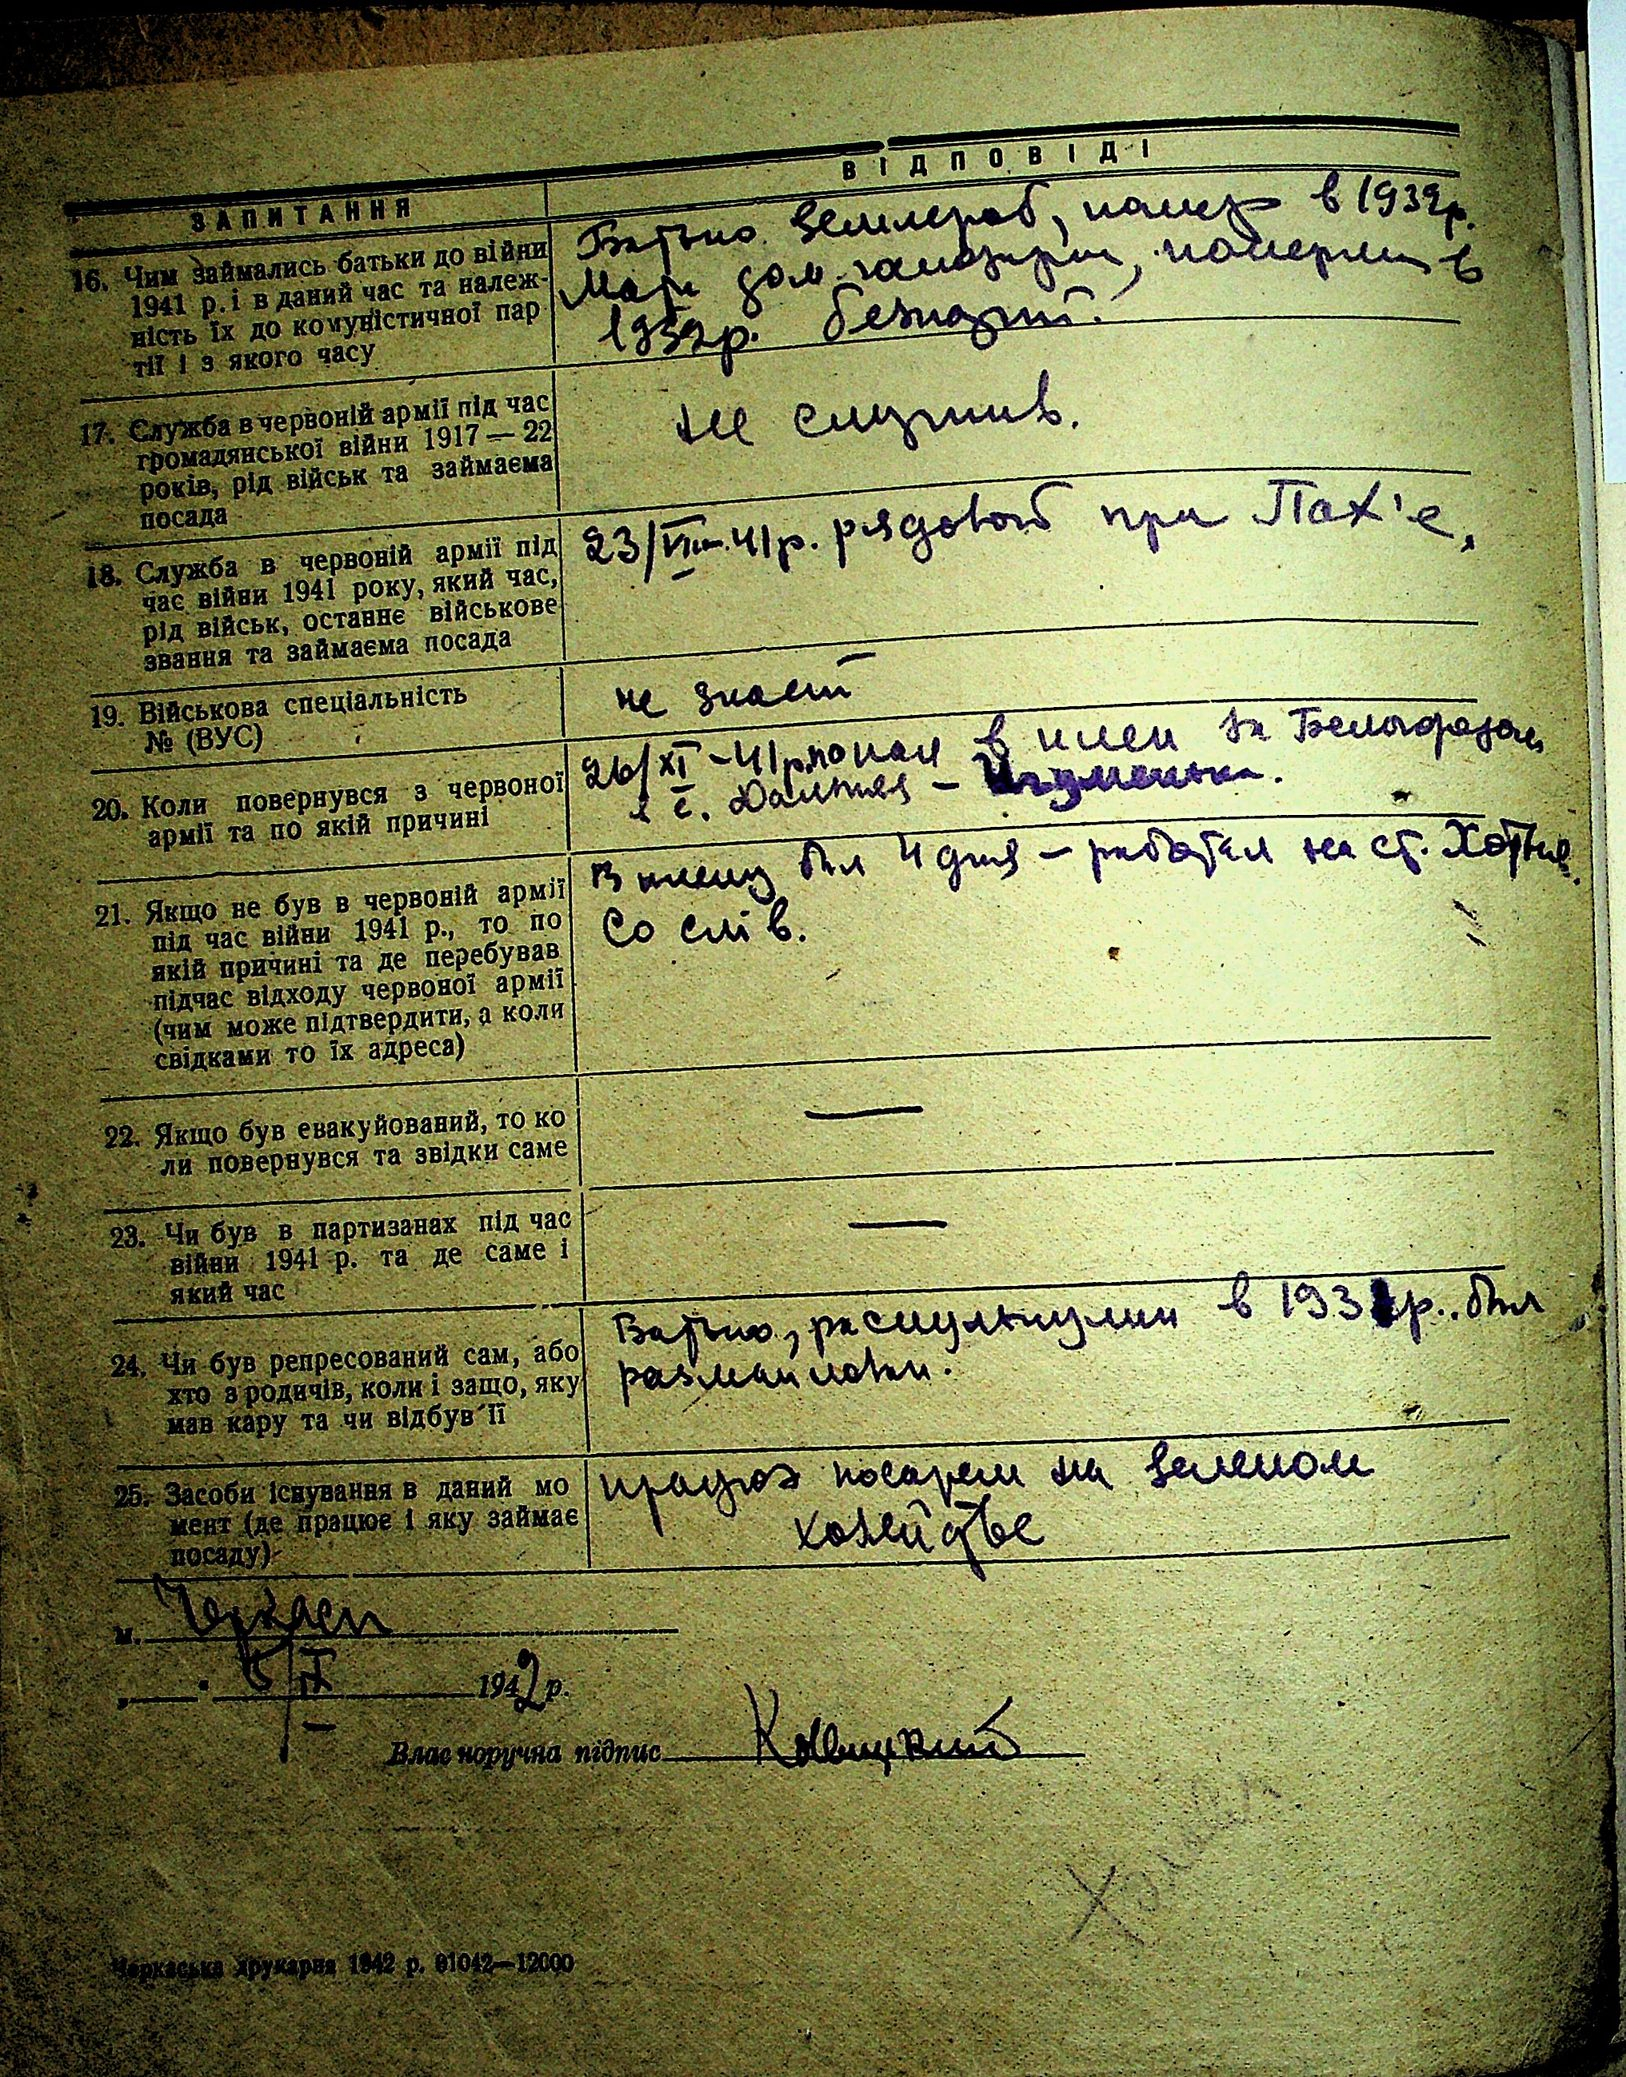 ЗАПИТАННЯ
ВІДПОВІДІ
16. Чим займались батьки до війни
1941 р. і в даний час та належ-
ність їх до комуністичної пар
тії і з якого часу
Батько землероб, помер в 1932р.
Мати дом. , померла в
1932р. безпартій.
17. Служба в червоній армії під час
громадянської війни 1917—22
років, рід військ та займаєма
посада
не служив.
18. Служба в червоній армії під
час війни 1941 року, який час,
рід військ, останнє військове
звання та займаєма посада
23/VIII-41р. рядовой при Пах'е,
19. Військова спеціальність
№ (ВУС)
не знает
20. Коли повернувся з червоної
армії та по якій причині
26/XI-41р. попал в плен за Белогородом
в с. Дальняя - Игуменька.
21. Якщо не був в червоній армії
під час війни 1941 р., то по
якій причині та де перебував
підчас відходу червоної армії
(чим може підтвердити, а коли
свідками то їх адреса)
В плену был 4 дня - работал на ст. Хотня.
Со слів.
22. Якщо був евакуйований, то ко
ли повернувся та звідки саме
—
23. Чи був в партизанах під час
війни 1941 р. та де саме і
який час
—
24. Чи був репресований сам, або
хто з родичів, коли і защо, яку
мав кару та чи відбув її
Батько, раскулькулили в 1931р.. был
25. Засоби існування в даний мо
мент (де працює і яку займає
посаду)
на зеленом
хозействе
м. Черкаси
5/IX 1942 р.
Власноручна підпис
Черкаська друкарня 1942 р. 01042—12000